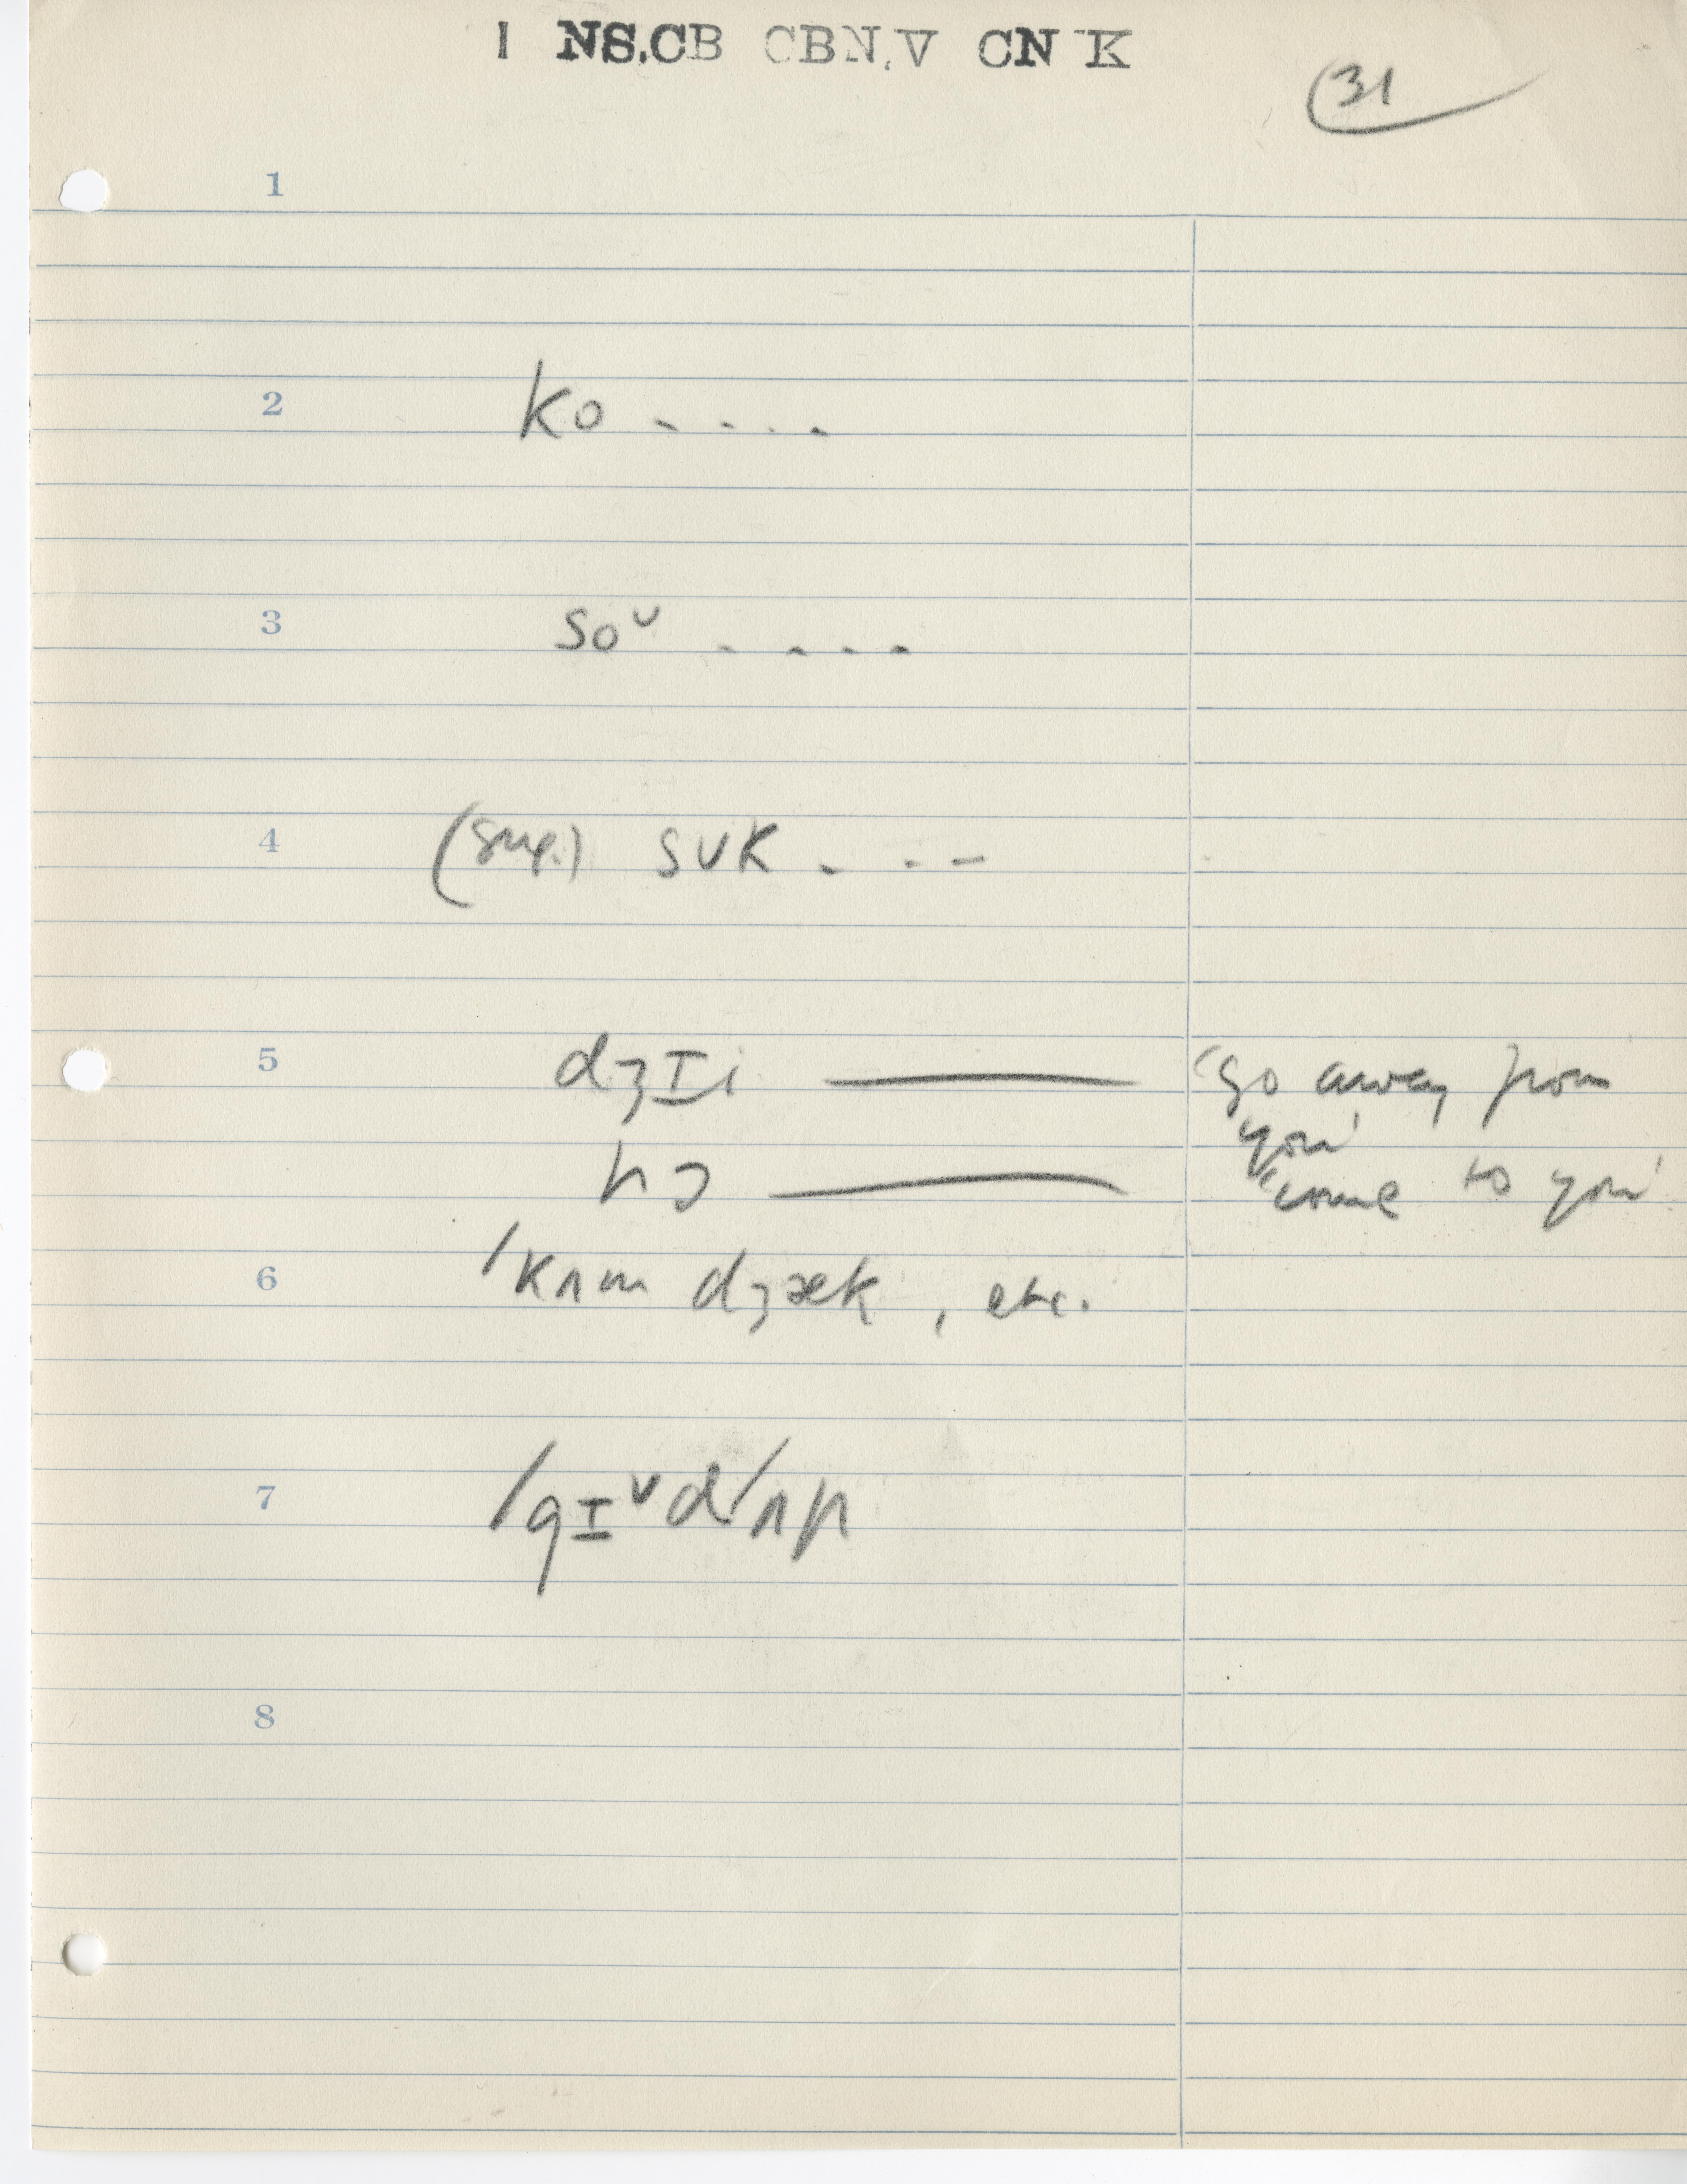 I NS.CB CBN.V CN K
31
1
2 ko ....
3 soᵛ ....
4 sʊk . . . -
5 dʒɪi —— 'go away from
you'
hɔ —— 'come to you'
6 ˈkʌm dʒæk, etc.
7 /gɪᵛd/ʌp
8